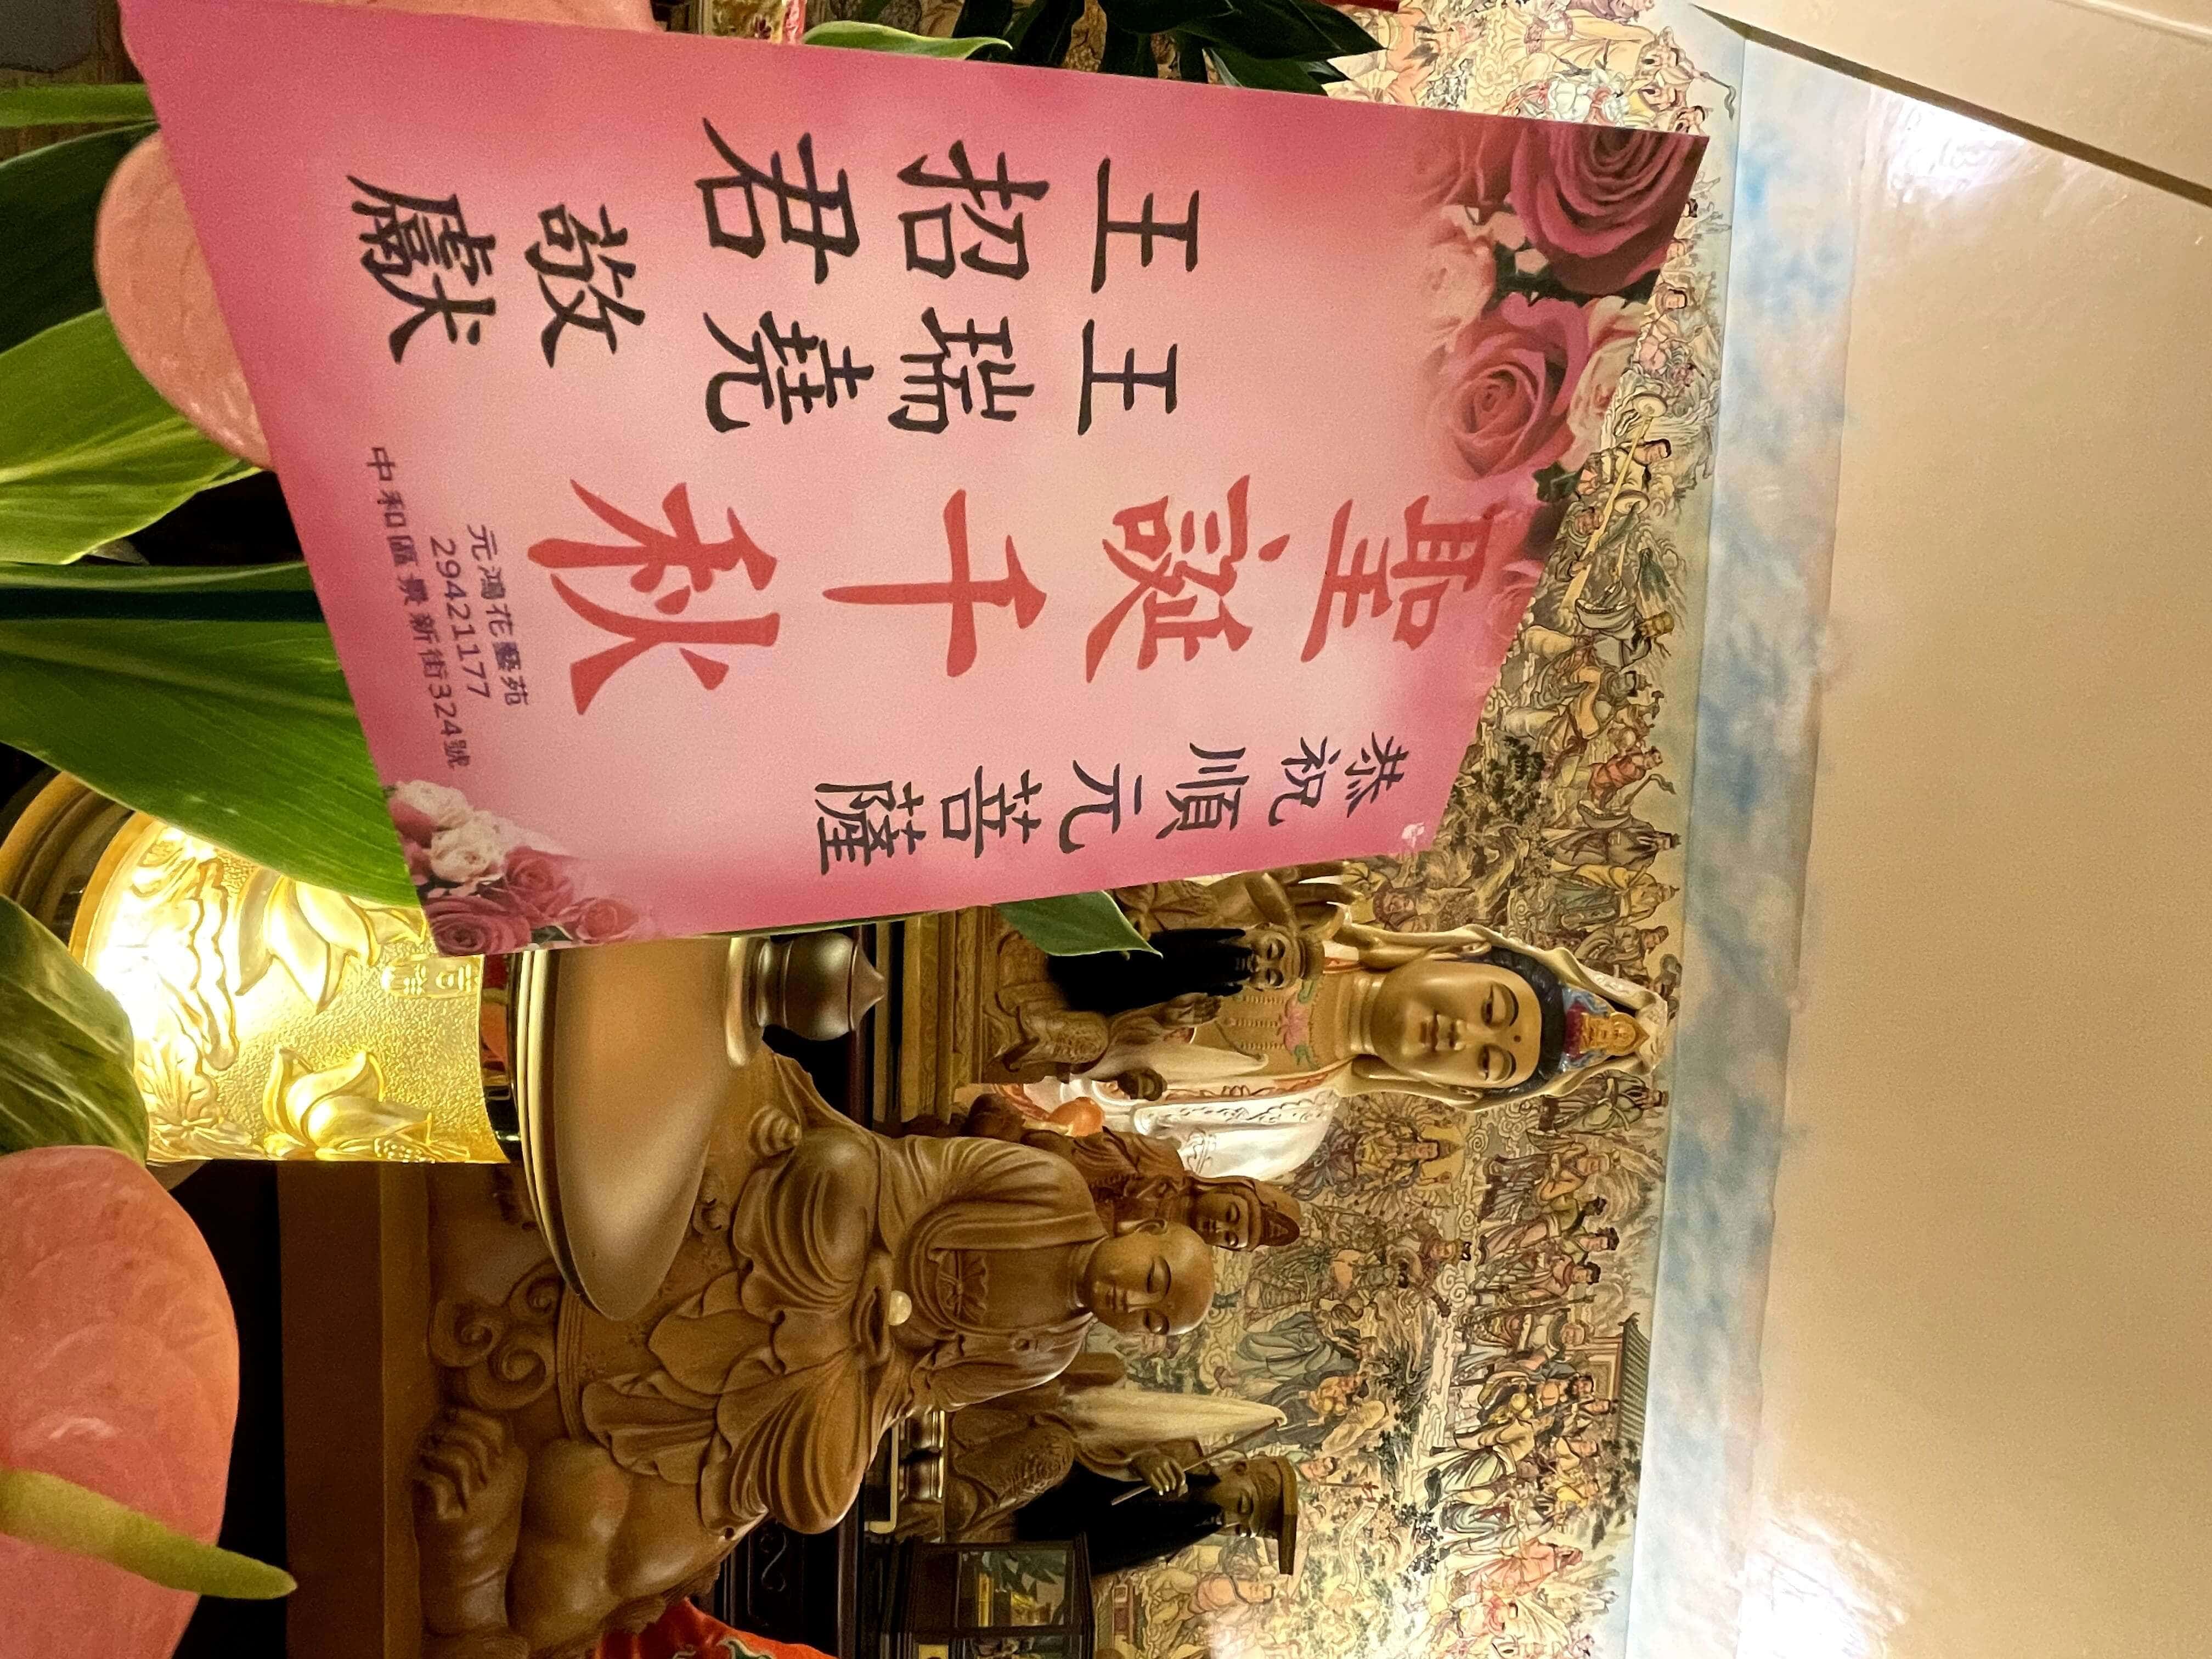 恭祝 順元菩薩
聖誕千秋
王瑞堯
王招君
敬獻
元鴻花藝苑
29421177
中和區景新街324號